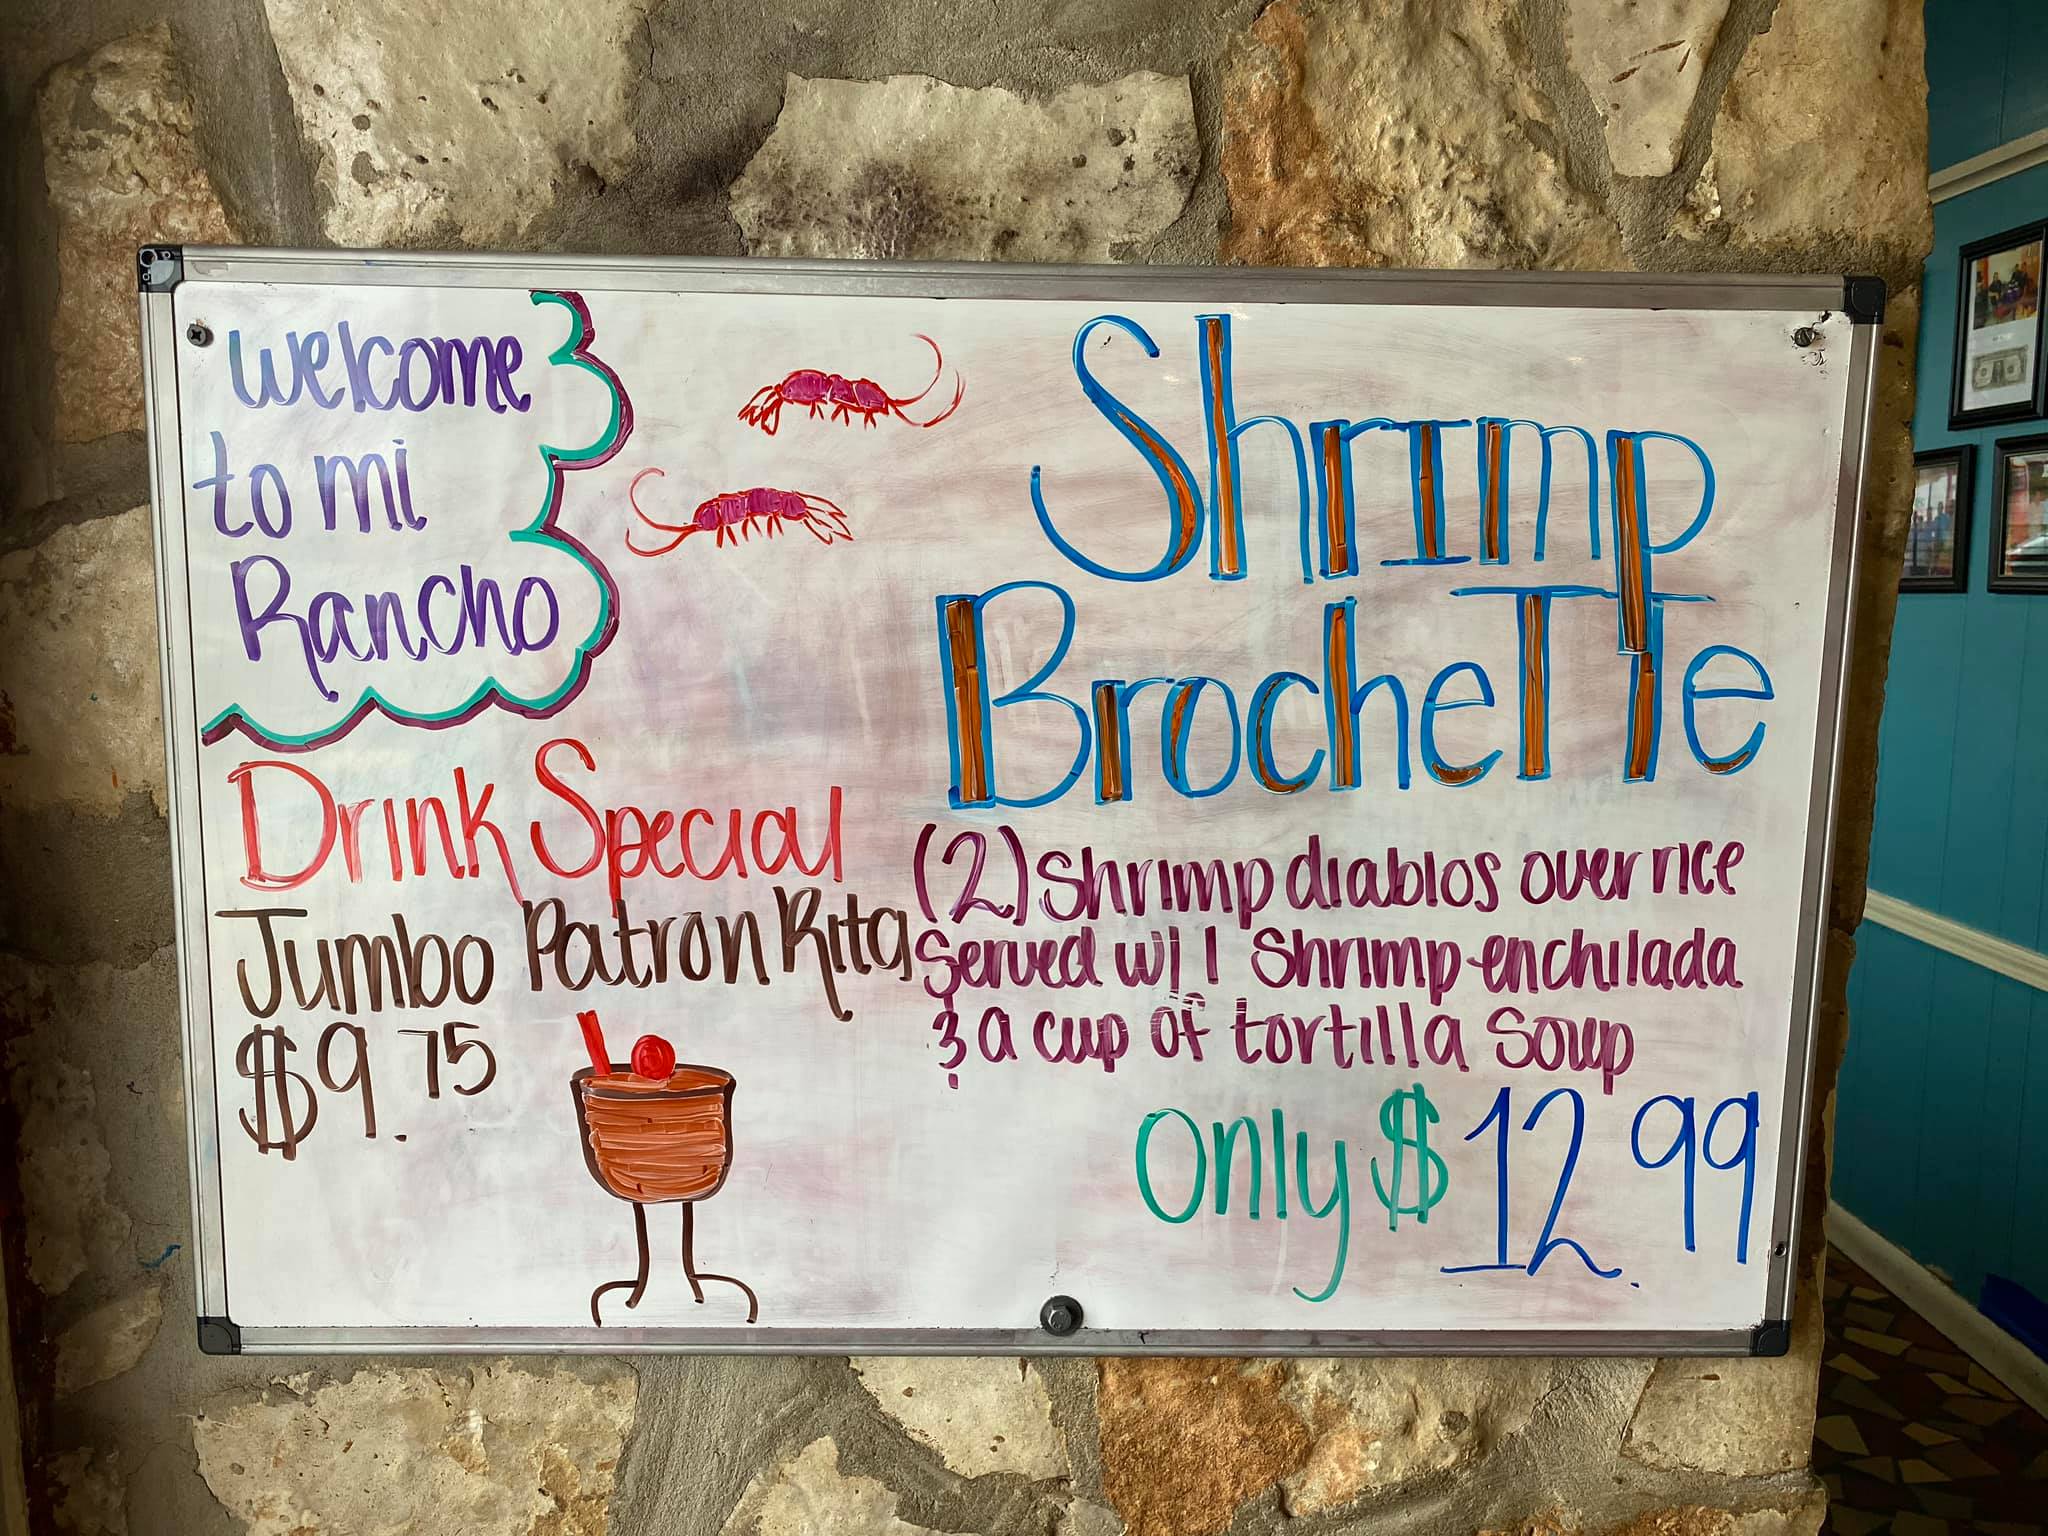 welcome
to mi
Rancho
Drink Special
Jumbo Patron Rita
$9.75
Shrimp
Brochette
(2) Shrimp diablos over rice
Served w/ 1 Shrimp enchilada
& a cup of tortilla Soup
only $12.99